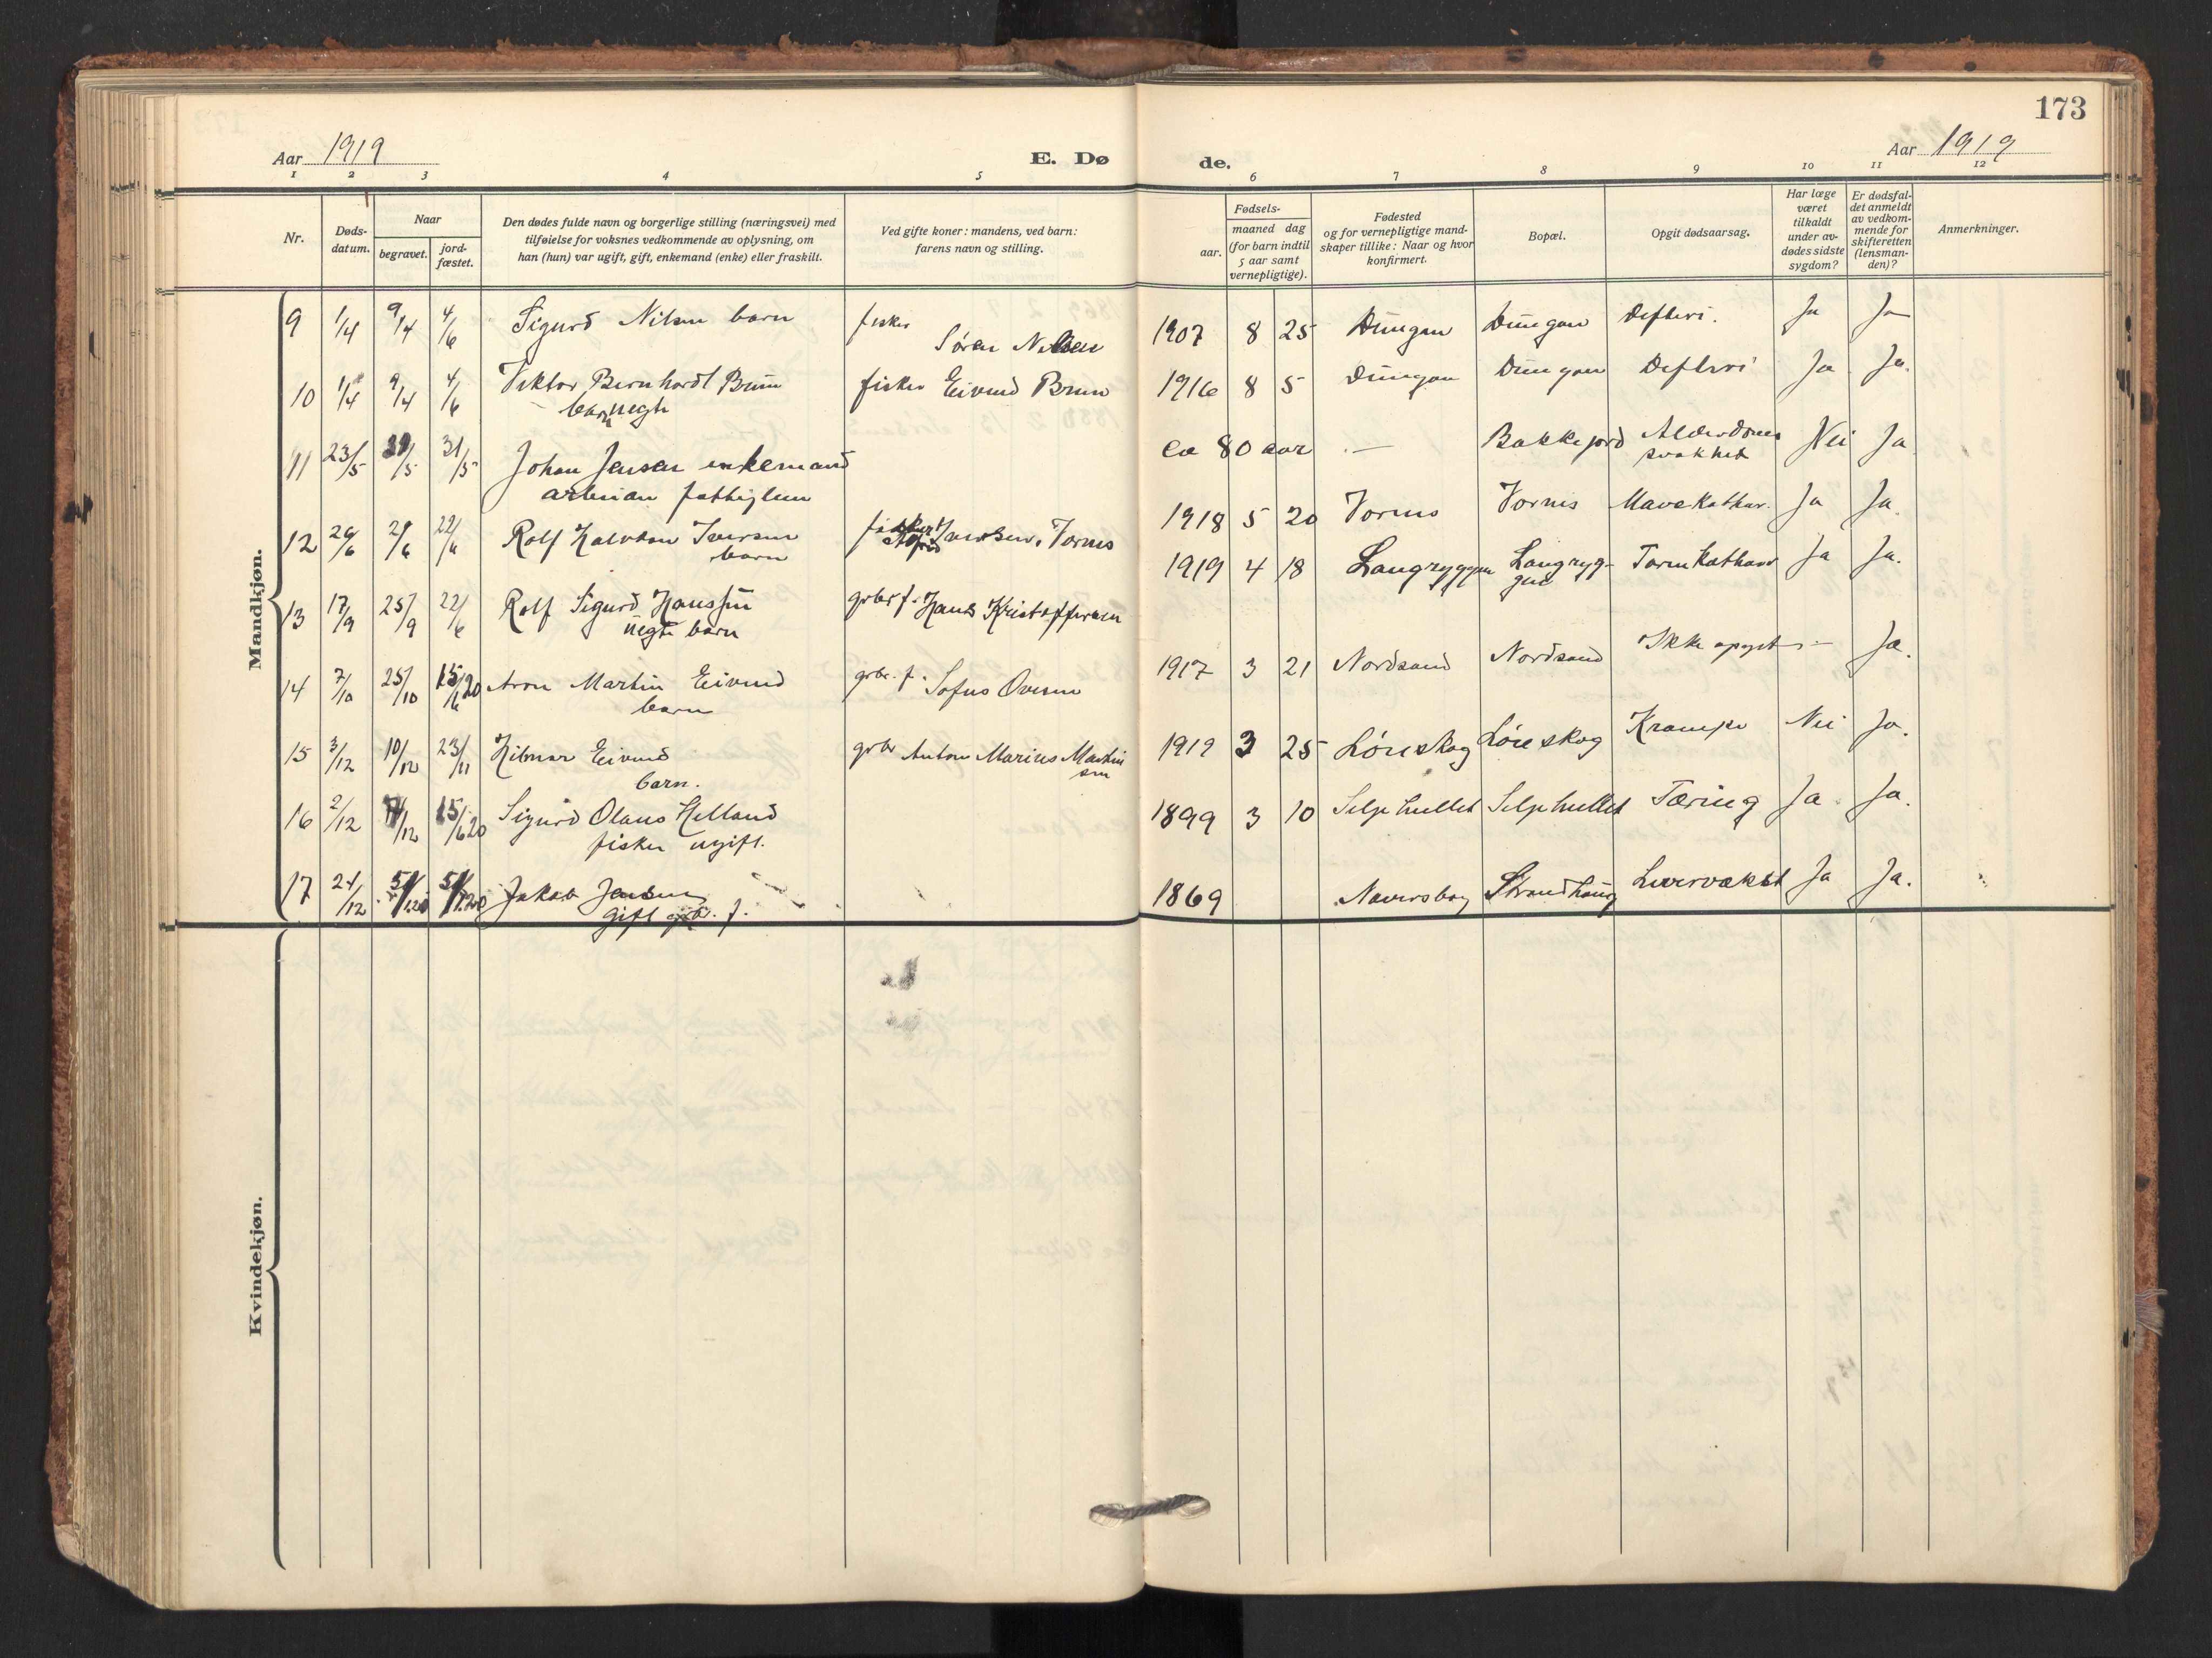 173
Aar 1919
E. Dø
de.
Aar 1919
1 2 3 4 5 6 7 8 9 10 11 12
Nr.
Døds-
datum.
Naar
begravet.
jord-
fæstet.
Den dødes fulde navn og borgerlige stilling (næringsvei) med
tilføielse for voksnes vedkommende av oplysning, om
han (hun) var ugift, gift, enkemand (enke) eller fraskilt.
Ved gifte koner: mandens, ved barn:
farens navn og stilling.
Fødsels-
aar.
maaned dag
(for barn indtil
5 aar samt
vernepligtige).
Fødested
og for vernepligtige mand-
skaper tillike: Naar og hvor
konfirmert.
Bopæl.
Opgit dødsaarsag.
Har læge
været
tilkaldt
under av-
dødes sidste
sygdom?
Er dødsfal-
det anmeldt
av vedkom-
mende for
skifteretten
(lensman-
den)?
Anmerkninger.
Mandkjøn.
9 1/4 9/4 4/6 Sigurd Nilsen barn fisker 1907 8 25 Dungan Dungan Difteri. Ja Ja
Søren Nilsen
10 1/4 9/4 4/6 Viktor Bernhardt Brun fisker Eivind Brun 1916 8 5 Dungan Dungan Difteri Ja Ja.
barn uegte
11 23/5 31/5 31/5 Johan Jensen enkemand ca 80 aar — Bakkejord Alderdoms Nei Ja
svakhet
12 26/6 2/6 22/6 Rolf Halvdan Iversen fisker Iversen, Vornes 1918 5 20 Vornes Vornes Mavekathar. Ja Ja.
barn
13 17/9 25/9 22/6 Rolf Sigurd Hanssen grbr f. Hans Kristoffersen 1919 4 18 Langryggen Langryg- Tarmkathar Ja Ja.
uegte barn
gen
14 7/10 25/10 15/6 20 Aron Martin Eivind grbr. f. Sofus Ovesen 1917 3 21 Nordsand Nordsand Ikke opgit - Ja.
barn
15 3/12 10/12 23/11 Hilmar Eivind grbr Anton Marius Martin 1919 3 25 Løneskog Løneskog Krampe Nei Ja.
barn.
sen
16 2/12 /12 15/6 20 Sigurd Olaus Helland 1899 3 10 Selje hullet Selje hullet Tæring Ja Ja.
fisker ugift.
17 21/12 5/1 20 5/1 20 Jakob Jensen 1869 Naversberg Strandhaug Levervækst Ja Ja.
gift grbr. f.
Kvindekjøn.